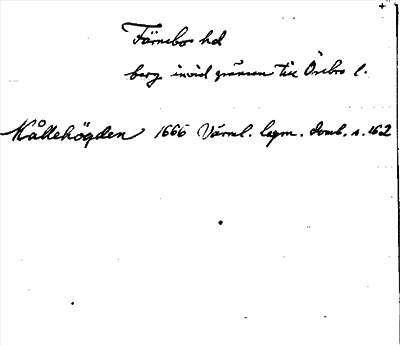 Färnebo hd
berg invid gränsen till Örebro l.
Kållehögden 1666 Värml. lagm. domb. s. 162